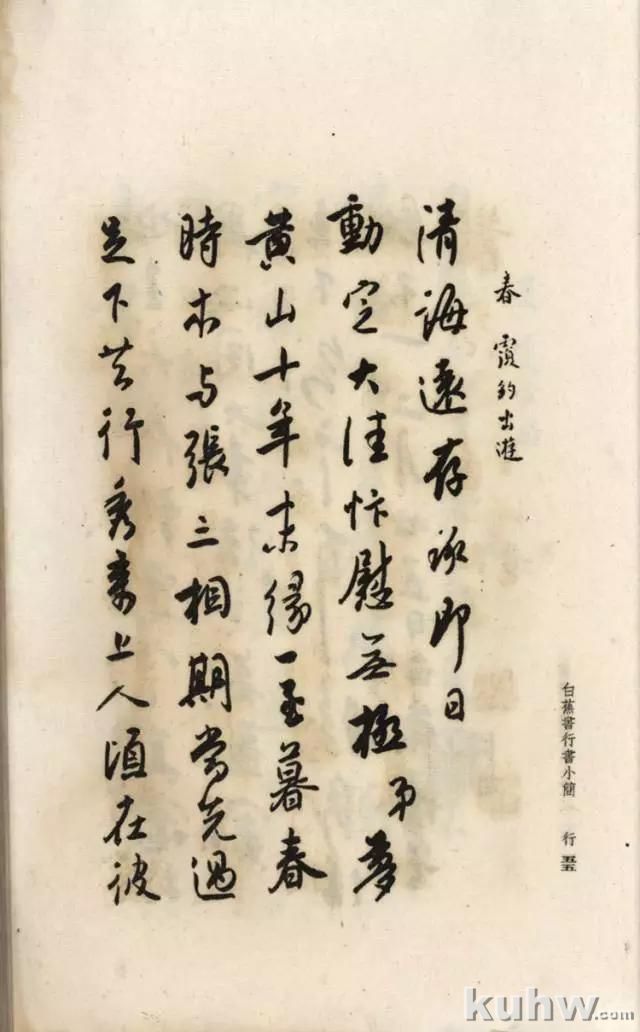 春霞约出遊
清誨遠存承即日
動定大佳忭慰無極弟夢
黄山十年未緣一至暮春
時本与張三相期當先過
足下共行秀峯上人頃在彼
白蕉書行書小簡 行 五五
kuhw.com